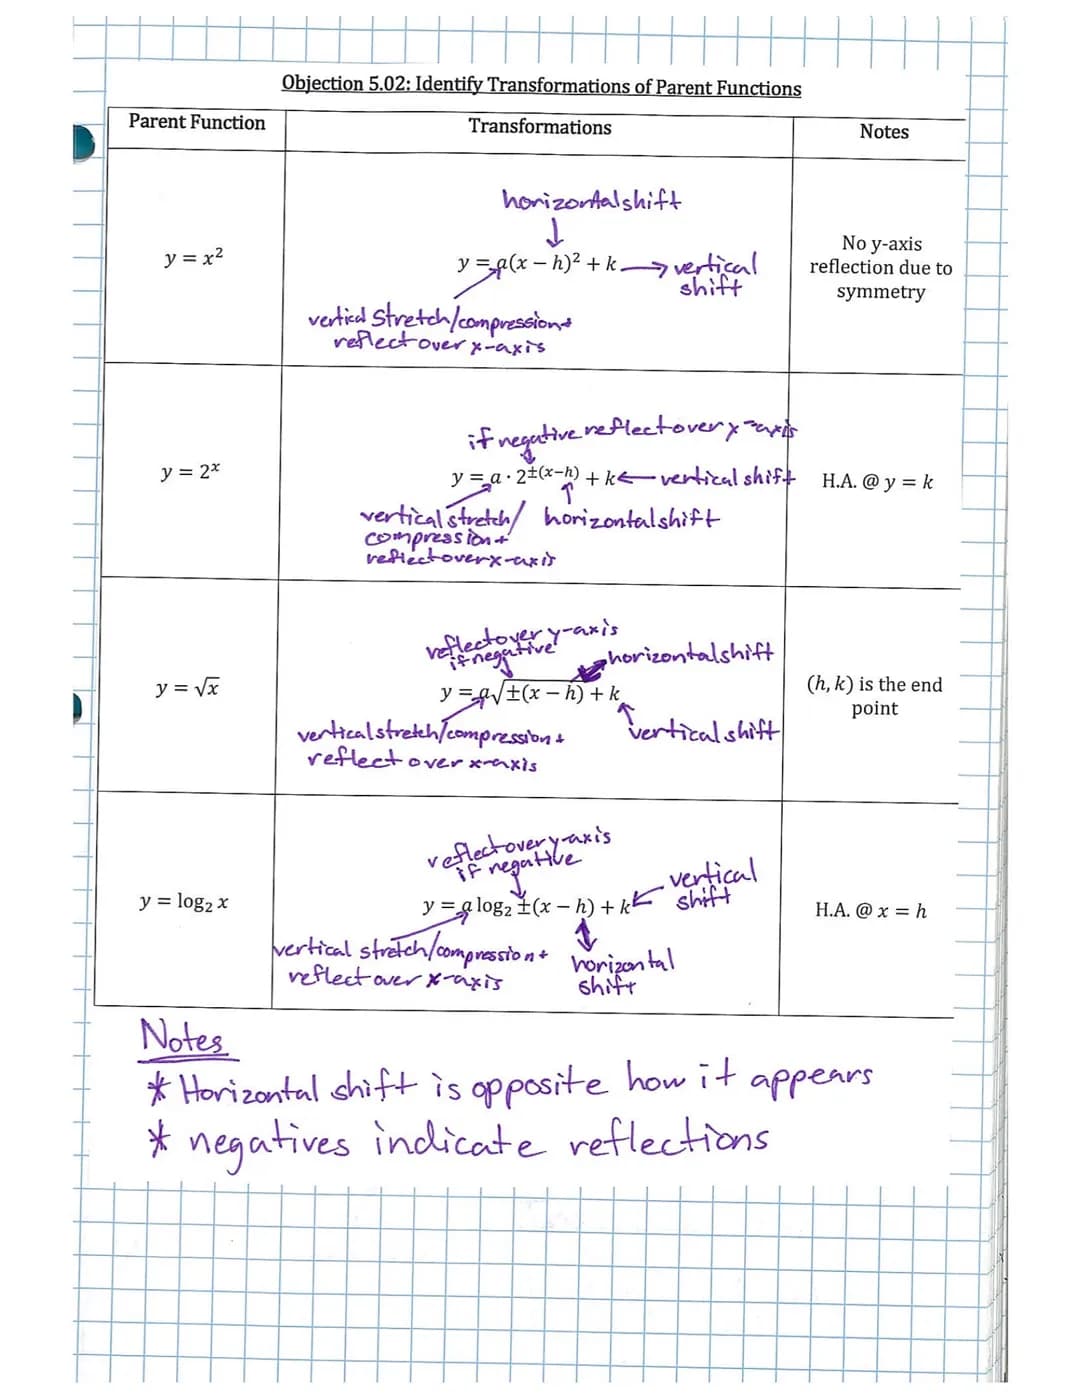 Objection 5.02: Identify Transformations of Parent Functions
Parent Function
Transformations
Notes
y = x²
horizontal shift
y = a(x − h)² + k
vertical
shift
vertical Stretch/compression +
reflect over x-axis
No y-axis
reflection due to
symmetry
y = 2ˣ
if negative reflect over x-axis
y = a · 2^±(x−h) + k
vertical shift
vertical stretch/
compression +
reflect over x-axis
horizontal shift
H.A. @ y = k
y = √x
reflect over y-axis
if negative
horizontal shift
y = a√±(x − h) + k
vertical stretch/compression +
reflect over x-axis
vertical shift
(h, k) is the end
point
y = log₂ x
reflect over y-axis
if negative
vertical
shift
y = a log₂ ±(x − h) + k
vertical stretch/compression +
reflect over x-axis
horizontal
shift
H.A. @ x = h
Notes
* Horizontal shift is opposite how it appears
* negatives indicate reflections